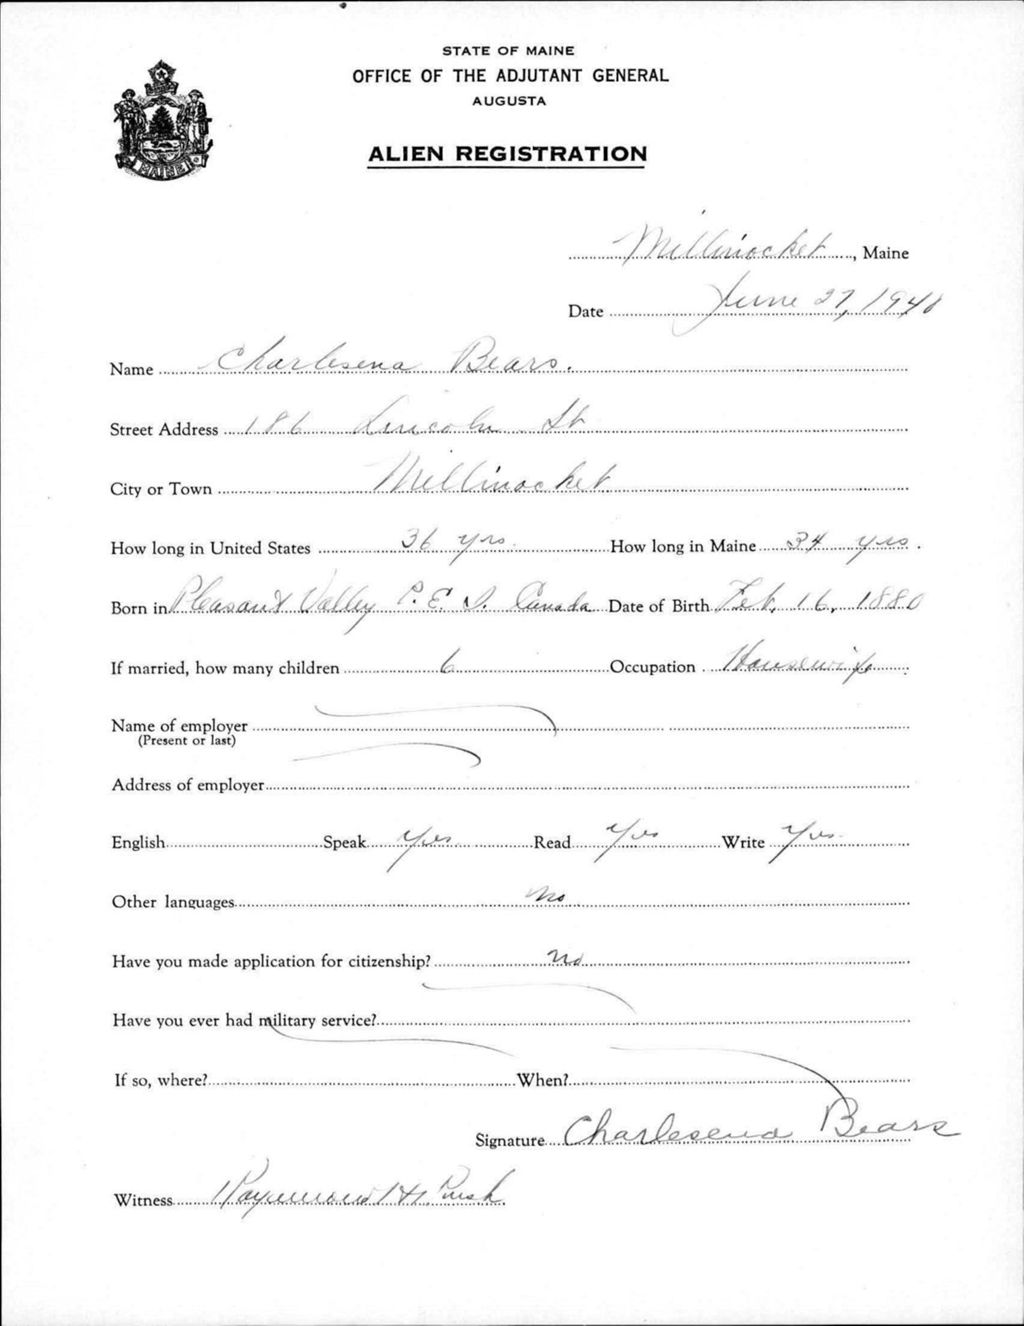 STATE OF MAINE
OFFICE OF THE ADJUTANT GENERAL
AUGUSTA
ALIEN REGISTRATION
MAINE
Millinocket, Maine
Date June 27, 1940
Name Charlesena Bears.
Street Address 186 Lincoln St
City or Town Millinocket
How long in United States 36 yrs. How long in Maine 34 yrs.
Born in Pleasant Valley P. E. I. Canada Date of Birth Feb. 16, 1880
If married, how many children 6 Occupation Housewife
Name of employer
(Present or last)
Address of employer
English Speak yes Read yes Write yes
Other languages no
Have you made application for citizenship? no
Have you ever had military service?
If so, where? When?
Signature Charlesena Bears
Witness Raymond H. Rush